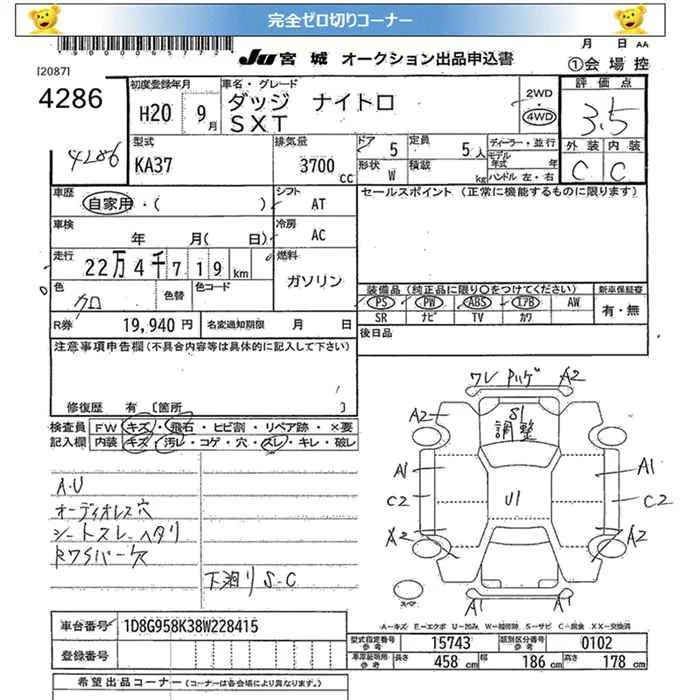 完全ゼロ切りコーナー
JU 宮城 オークション出品申込書
月 日 AA
[2087]
①会場控
4286
初度登録年月
H20 9月
車名・グレード
ダッジ ナイトロ
SXT
2WD・4WD
評価点
3.5
4286
型式
KA37
排気量
3700 cc
ドア 5
定員 5人
形状 W
積載 kg
ディーラー・並行
モデル年式 年
ハンドル 左・右
外装 内装
C C
車歴
自家用・( )
シフト AT
セールスポイント (正常に機能するものに限ります)
車検
年 月( 日)
冷房 AC
走行
22万4千719km
燃料
ガソリン
色
クロ
色替
色コード
装備品 (純正品に限り○をつけてください)
新車保証書
PS PW ABS エアB AW
SR ナビ TV カワ
有・無
R券 19,940円
名変通知期限 月 日
後日品
注意事項申告欄(不具合内容等は具体的に記入して下さい)
修復歴 有 [箇所 ]
検査員記入欄
FW キズ・飛石・ヒビ割・リペア跡・×要
内装 キズ・汚レ・コゲ・穴・スレ・キレ・破レ
A.U
オーディオレス穴
シートスレ ヘタリ
下廻り S.C
A2
A2
S1
調整
A1
A1
C2
U1
C2
A2
A2
スペア
A1
A1
A-キズ E-エクボ U-凹み W-補修跡 S-サビ C-腐食 XX-交換済
車台番号 1D8G958K38W228415
登録番号
型式指定番号 参考 15743
類別区分番号 参考 0102
車庫証明用 参考 長さ 458 cm 幅 186 cm 高さ 178 cm
希望出品コーナー (コーナーは各会場により異なります。)